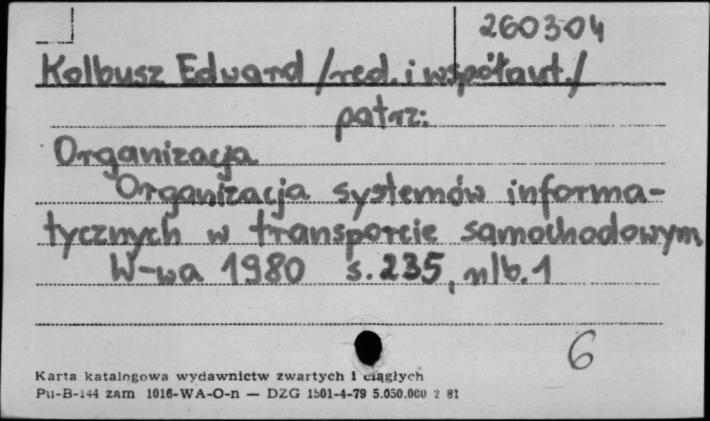 260304
Kolbusz Edward /red. i współaut./
patrz:
Organizacja
Organizacja systemów informa-
tycznych w transporcie samochodowym
W-wa 1980 s. 235, nlb. 1
6
Karta katalogowa wydawnictw zwartych i ciągłych
Pu-B-144 zam 1016-WA-O-n — DZG 1501-4-79 5.050.000 2 81